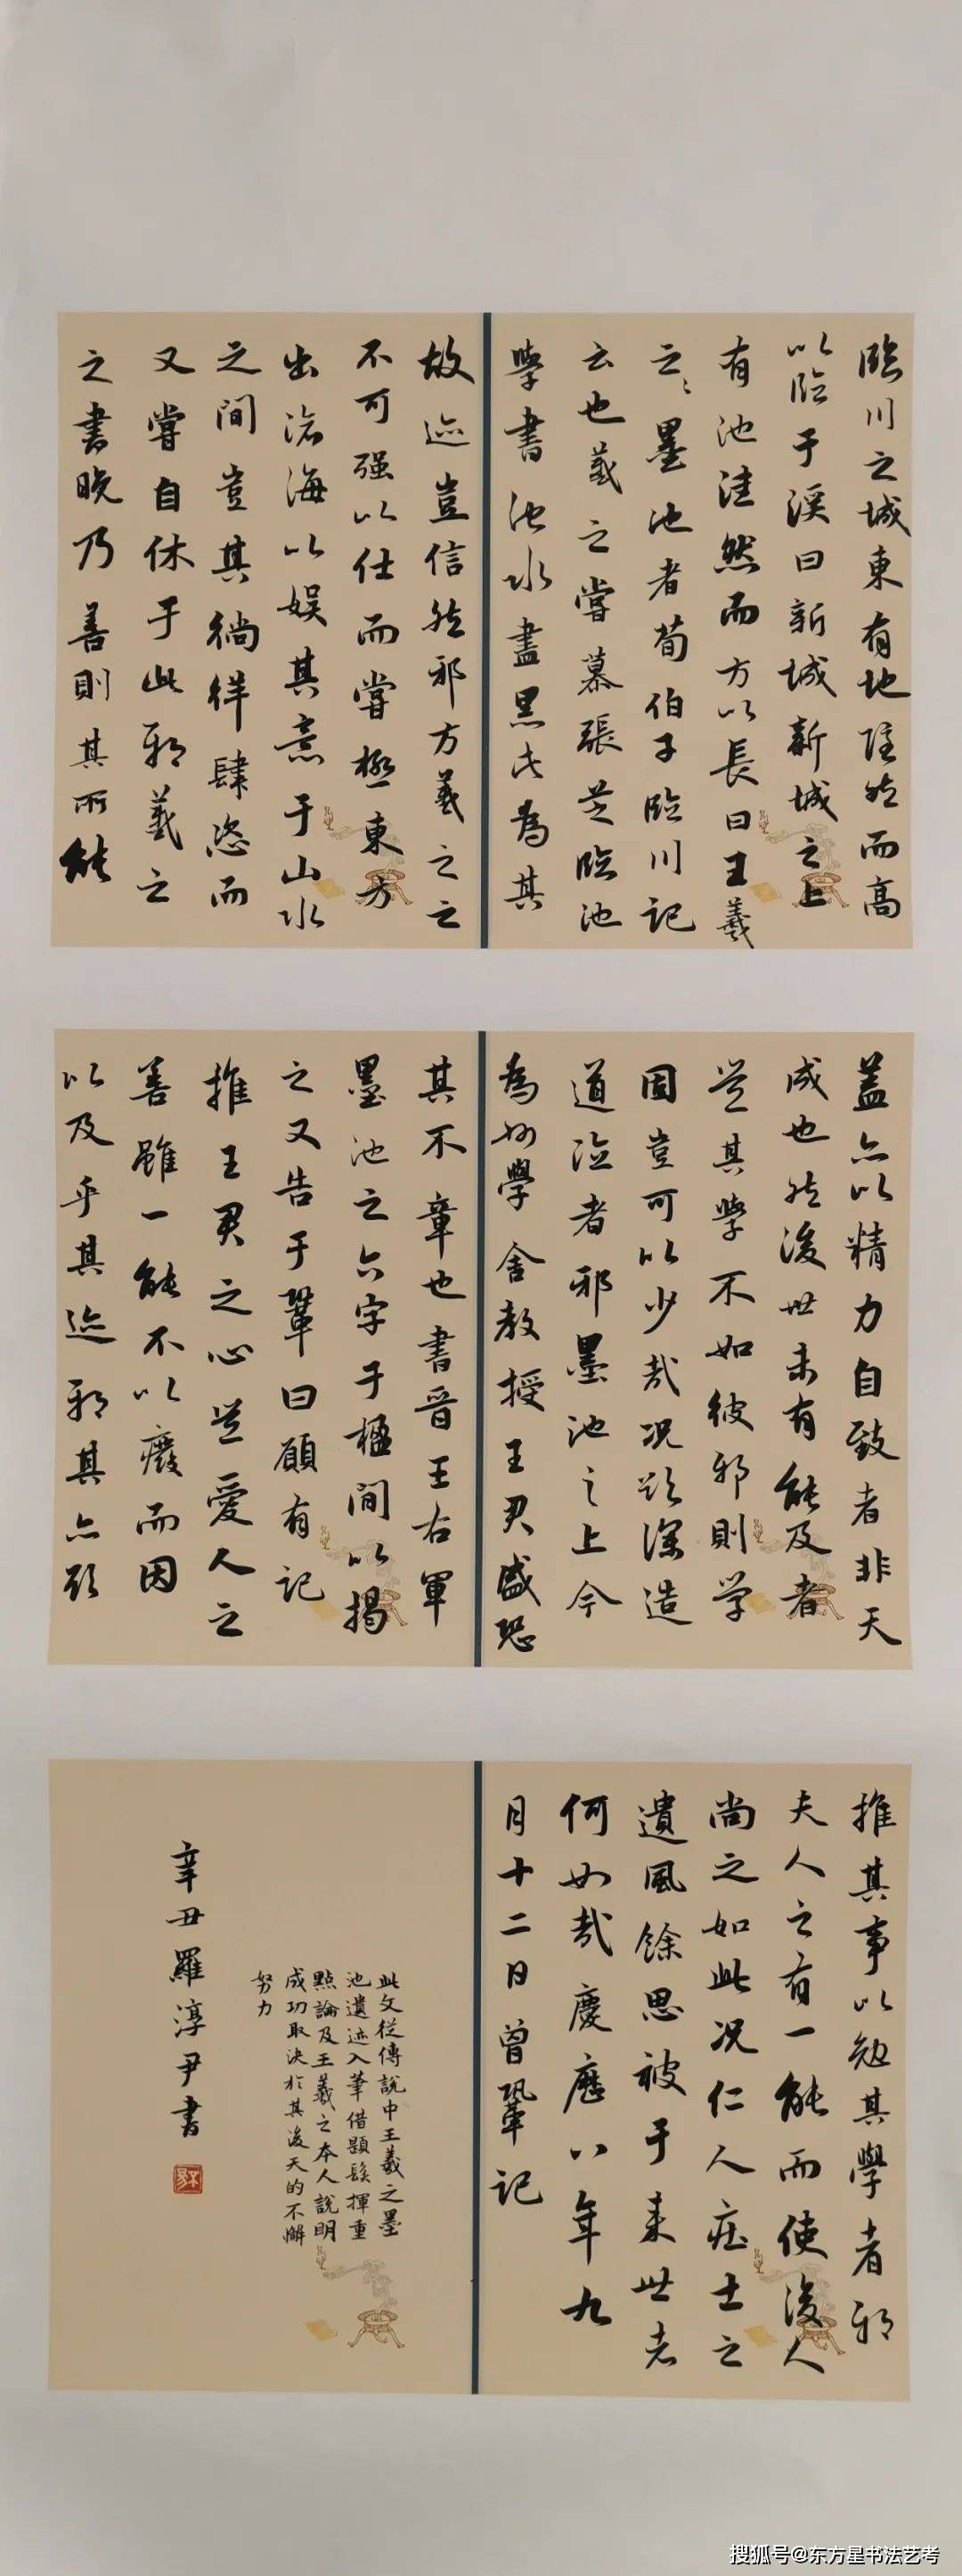 臨川之城東有地隱然而高
以臨于溪曰新城新城之上
有池洼然而方以長曰王羲
之之墨池者荀伯子臨川記
云也羲之嘗慕張芝臨池
學書池水盡黑此為其
故迹豈信然邪方羲之之
不可强以仕而嘗極東方
出滄海以娱其意于山水
之間豈其徜徉肆恣而
又嘗自休于此邪羲之
之書晚乃善則其所能
蓋亦以精力自致者非天
成也然後世未有能及者
豈其學不如彼邪則学
固豈可以少哉况欲深造
道德者邪墨池之上今
為州學舍教授王君盛恐
其不章也書晋王右軍
墨池之六字于楹間以揭
之又告于鞏曰願有記
推王君之心豈愛人之
善雖一能不以廢而因
以及乎其迹邪其亦欲
推其事以勉其學者邪
夫人之有一能而使後人
尚之如此况仁人莊士之
遺風餘思被于来世者
何如哉慶曆八年九
月十二日曾鞏記
此文從傳説中王羲之墨
池遺迹入筆借題發揮重
點論及王羲之本人說明
成功取决於其後天的不懈
努力
辛丑羅淳尹書
搜狐号@东方星书法艺考